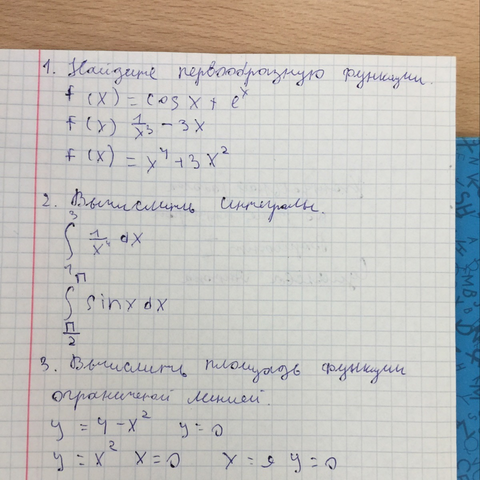 1. Найдите первообразную функции.
f(x) = cos x + e^x
f(x) 1/x³ - 3x
f(x) = x⁴ + 3x²
2. Вычислить интегралы.
∫₁³ 1/x⁴ dx
∫_{π/2}^π sin x dx
3. Вычислить площадь функции
ограниченой линией.
y = 4 - x² y = 0
y = x² x = 0 x = y = 0